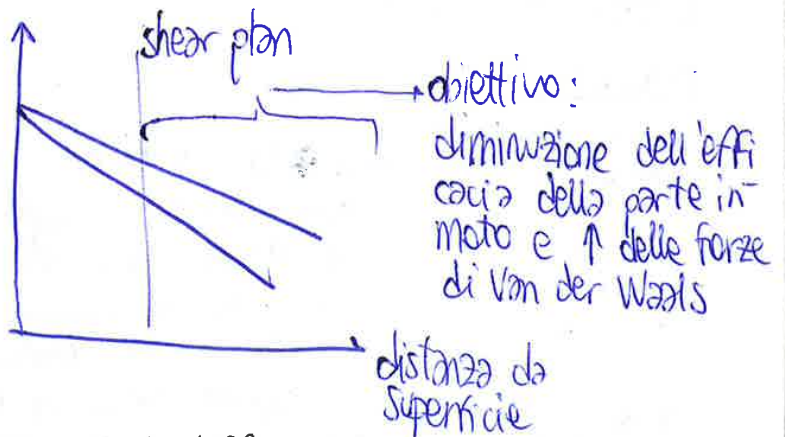 shear plan
obiettivo:
diminuzione dell'effi
cacia della parte in
moto e ↑ delle forze
di Van der Waals
distanza da
superficie